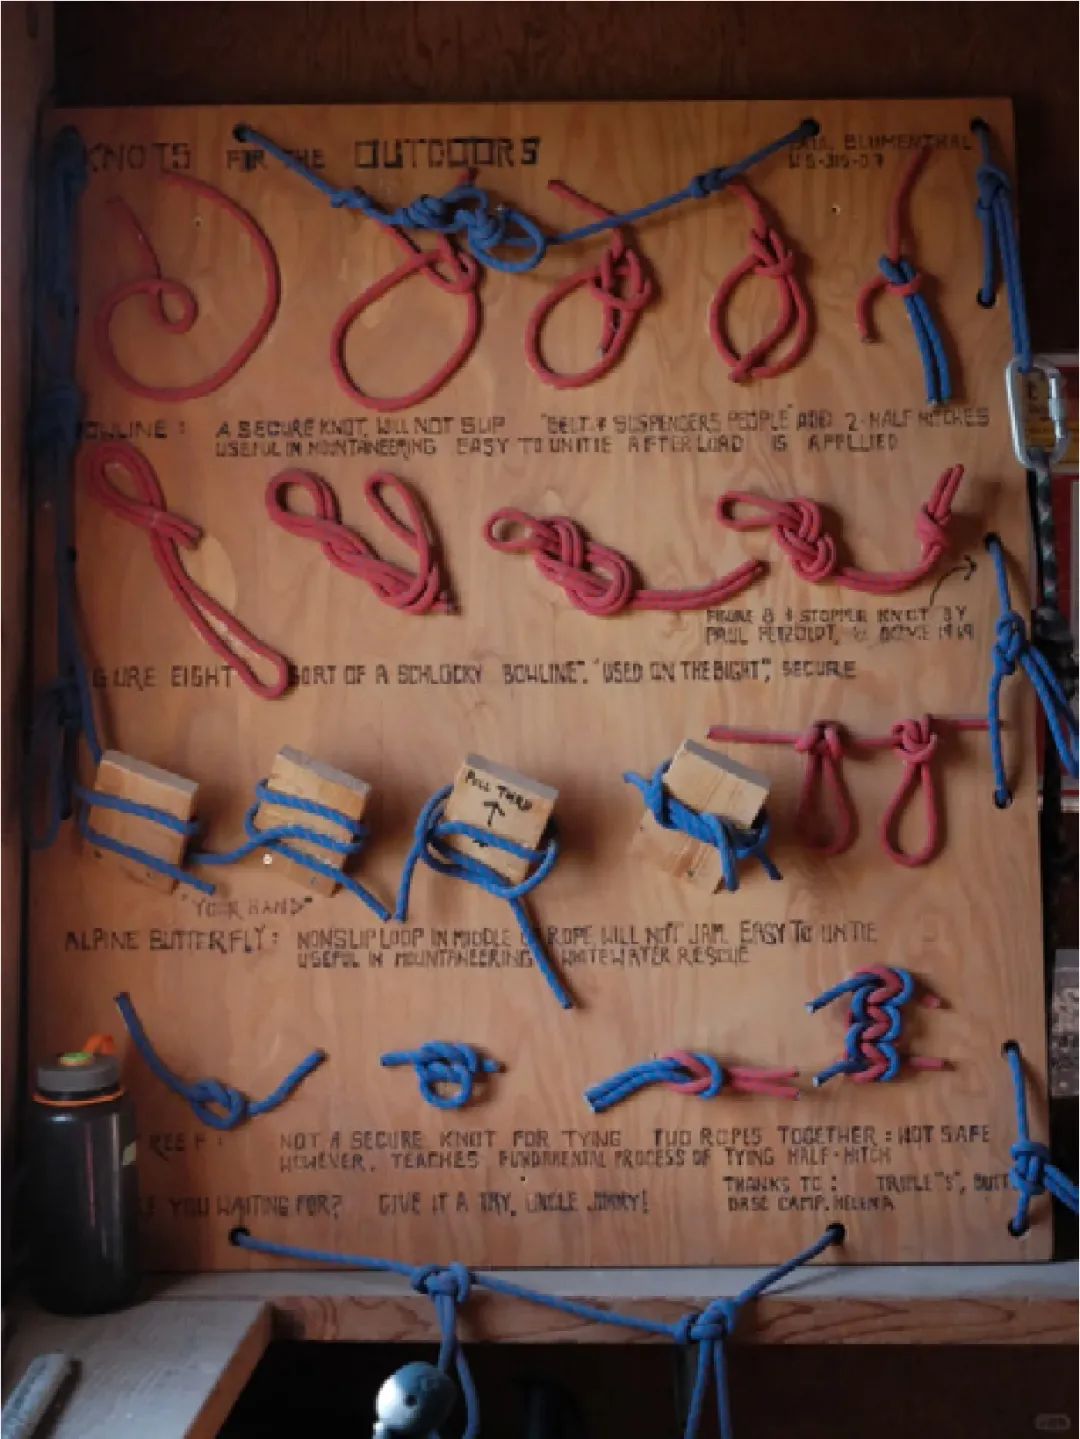 KNOTS FOR THE OUTDOORS
PAUL BLUMENTHAL
BOWLINE: A SECURE KNOT, WILL NOT SLIP "BELT & SUSPENDERS PEOPLE" ADD 2-HALF HITCHES
USEFUL IN MOUNTAINEERING EASY TO UNTIE AFTER LOAD IS APPLIED
FIGURE 8 & STOPPER KNOT BY
PAUL PETZOLDT, 1969
GURE EIGHT SORT OF A SCHLOCKY BOWLINE". "USED ON THE BIGHT", SECURE
PULL THRU
"YOUR HAND"
ALPINE BUTTERFLY: NONSLIP LOOP IN MIDDLE OF ROPE, WILL NOT JAM. EASY TO UNTIE
USEFUL IN MOUNTAINEERING WHITEWATER RESCUE
REEF: NOT A SECURE KNOT FOR TYING TWO ROPES TOGETHER: NOT SAFE
HOWEVER, TEACHES FUNDAMENTAL PROCESS OF TYING HALF-HITCH
THANKS TO: TRIPLE "S", BUTT
YOU WAITING FOR? GIVE IT A TRY, UNCLE JIMMY! BASE CAMP, HELENA